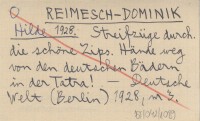 Q REIMESCH-DOMINIK
Hilde 1928. Streifzüge durch
die schöne Zips. Hände weg
von den deutschen Bädern
in der Tatra! — Deutsche
Welt (Berlin) 1928,